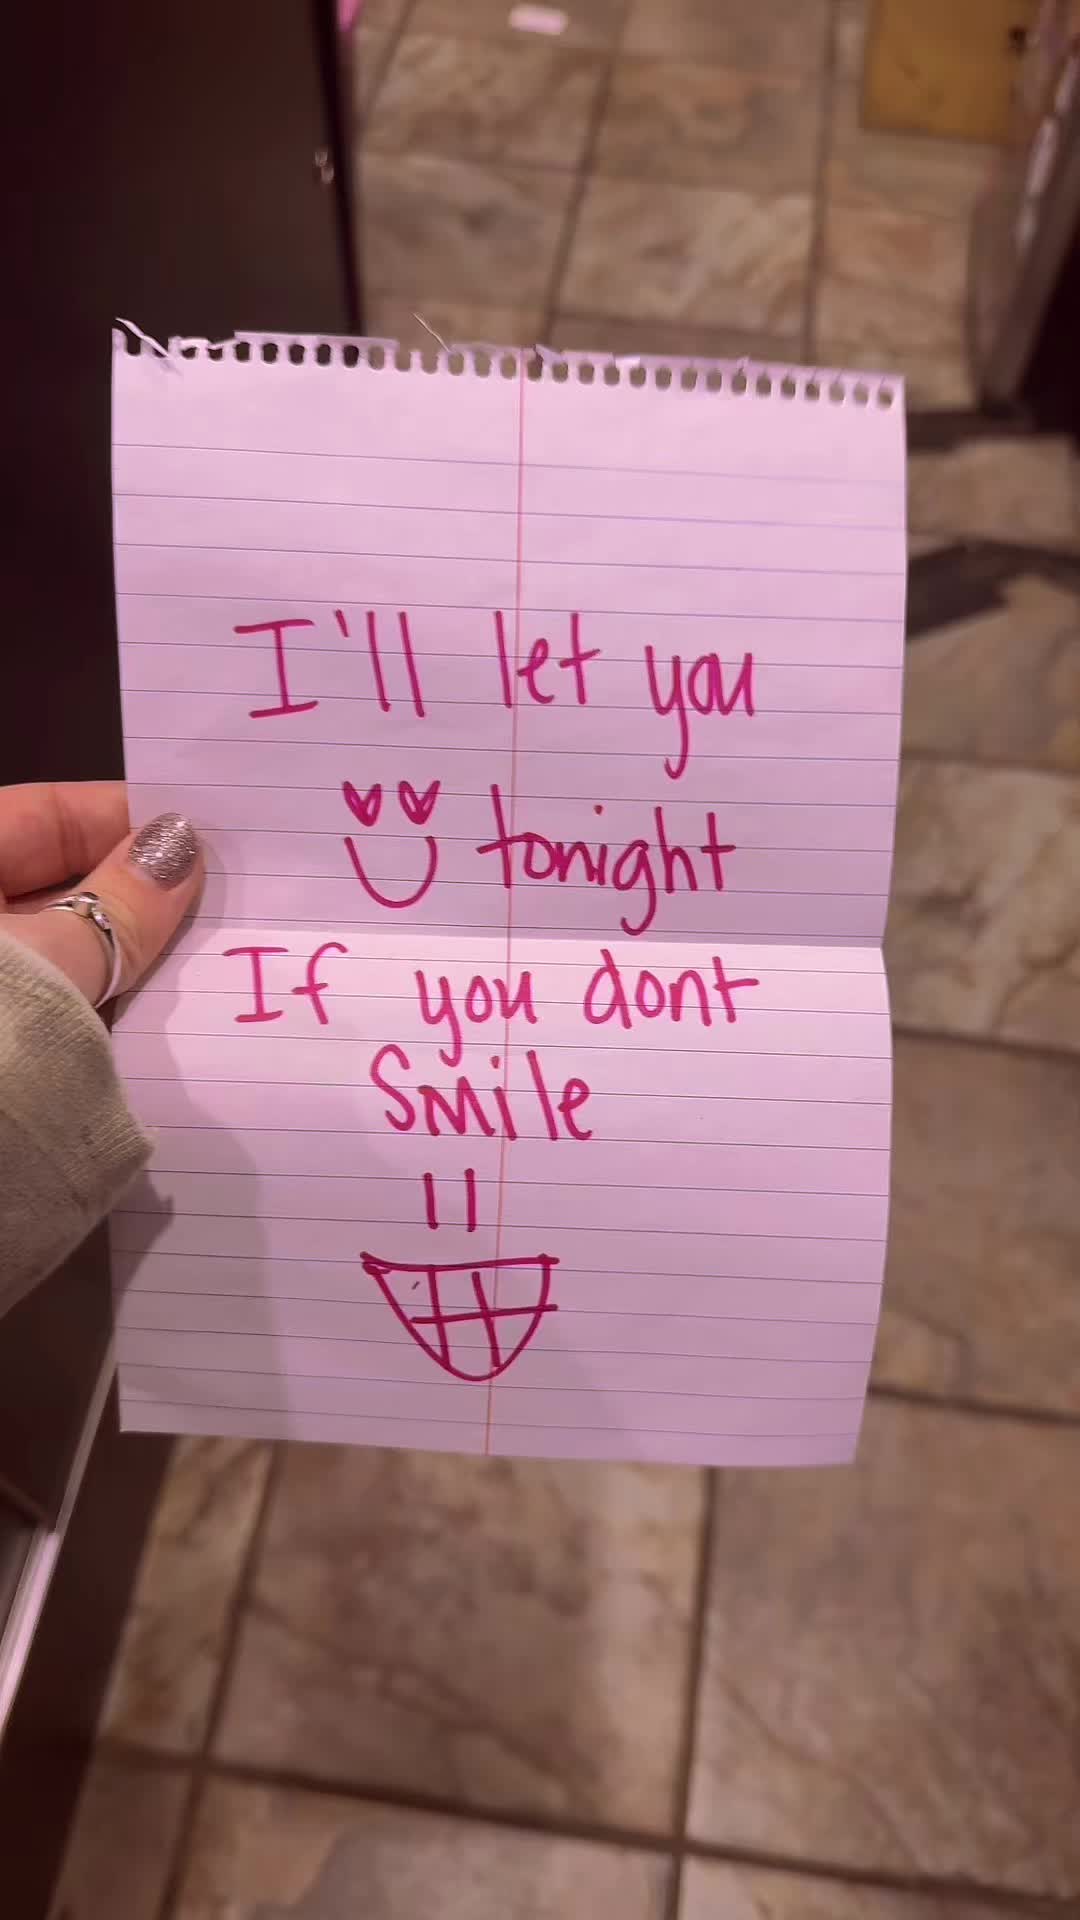 I'll let you
tonight
If you dont
Smile